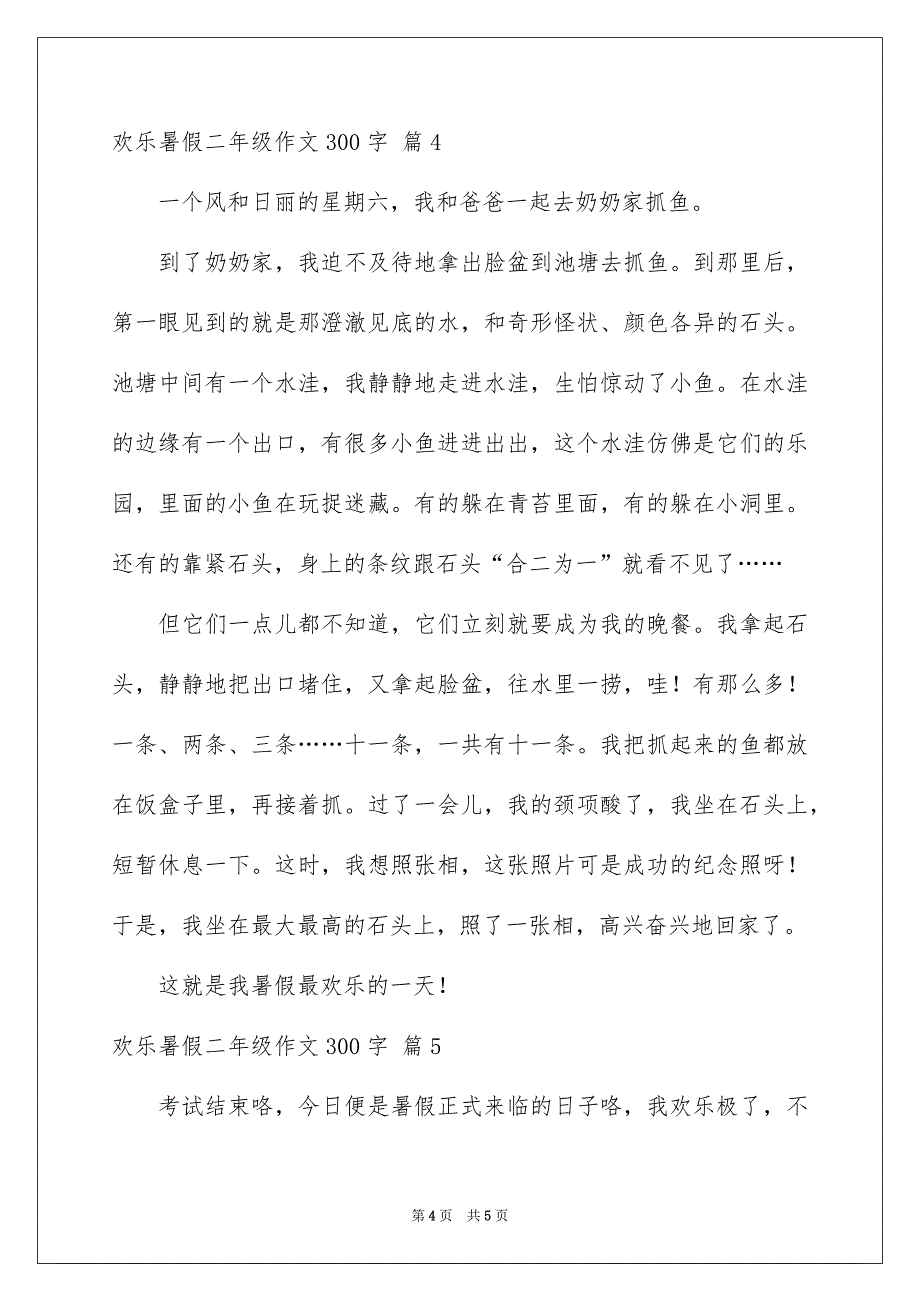 欢乐暑假二年级作文300字 篇4
一个风和日丽的星期六，我和爸爸一起去奶奶家抓鱼。
到了奶奶家，我迫不及待地拿出脸盆到池塘去抓鱼。到那里后，
第一眼见到的就是那澄澈见底的水，和奇形怪状、颜色各异的石头。
池塘中间有一个水洼，我静静地走进水洼，生怕惊动了小鱼。在水洼
的边缘有一个出口，有很多小鱼进进出出，这个水洼仿佛是它们的乐
园，里面的小鱼在玩捉迷藏。有的躲在青苔里面，有的躲在小洞里。
还有的靠紧石头，身上的条纹跟石头“合二为一”就看不见了……
但它们一点儿都不知道，它们立刻就要成为我的晚餐。我拿起石
头，静静地把出口堵住，又拿起脸盆，往水里一捞，哇！有那么多！
一条、两条、三条……十一条，一共有十一条。我把抓起来的鱼都放
在饭盒子里，再接着抓。过了一会儿，我的颈项酸了，我坐在石头上，
短暂休息一下。这时，我想照张相，这张照片可是成功的纪念照呀！
于是，我坐在最大最高的石头上，照了一张相，高兴奋兴地回家了。
这就是我暑假最欢乐的一天！
欢乐暑假二年级作文300字 篇5
考试结束咯，今日便是暑假正式来临的日子咯，我欢乐极了，不
第4页 共5页